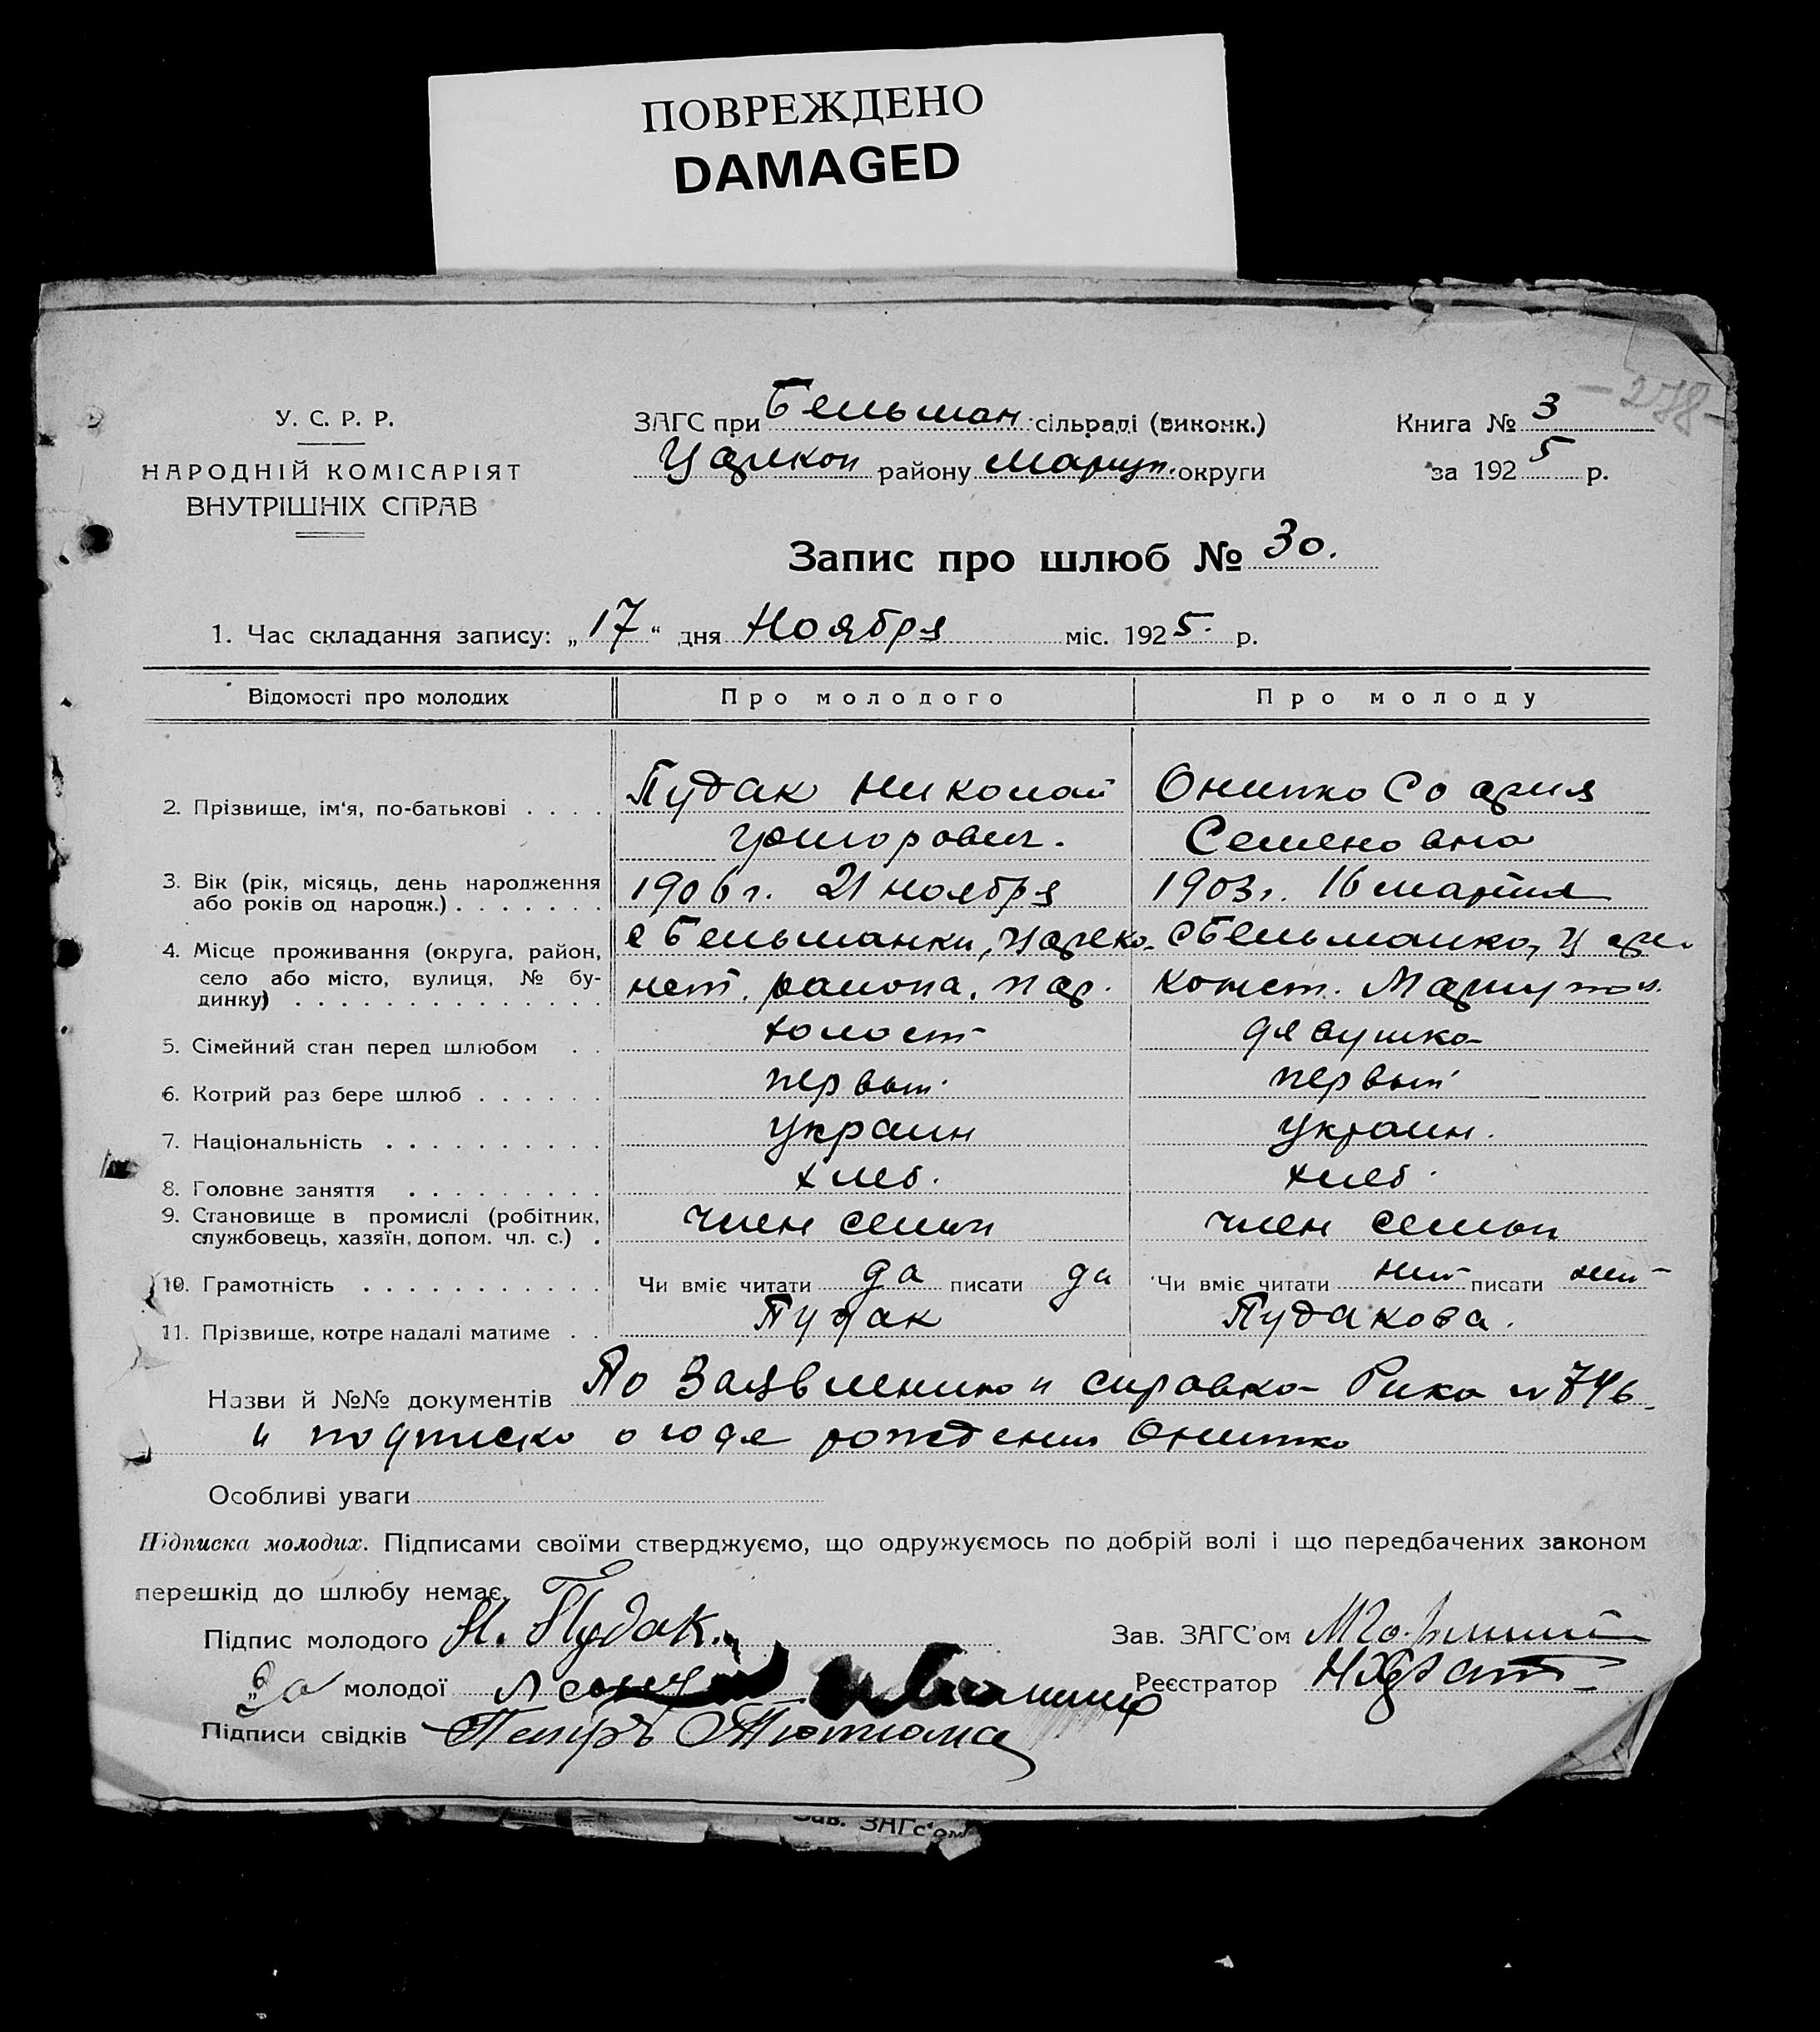 ПОВРЕЖДЕНО
DAMAGED
-278-
У. С. Р. Р.
НАРОДНІЙ КОМІСАРІЯТ
ВНУТРІШНІХ СПРАВ
ЗАГС при Бельман сільраді (виконк.)
Царекон району Мариуп. округи
Книга № 3
за 1925 р.
Запис про шлюб № 30.
1. Час складання запису: „17“ дня Ноября міс. 1925. р.
Відомості про молодих Про молодого Про молоду
2. Прізвище, ім'я, по-батькові . . . . Пудак Николай Онипко София
Григорович. Семеновна
3. Вік (рік, місяць, день народження 1906 г. 21 ноября 1903 г. 16 марта
або років од народж.) . . . . . . .
4. Місце проживання (округа, район, с Бельманки, Царско- с Бельманка, Царе
село або місто, вулиця, № бу- нст. района, конст. Мариупол.
динку) . . . . . . . . . . . . . .
5. Сімейний стан перед шлюбом . . холост дявушка
6. Котрий раз бере шлюб . . . . . . первый первый
7. Національність . . . . . . . . . . украин украин.
8. Головне заняття . . . . . . . . . хлеб. хлеб.
9. Становище в промислі (робітник, член семьи член семьи
службовець, хазяїн, допом. чл. с.) .
10. Грамотність . . . . . . . . . . . Чи вміє читати да писати да Чи вміє читати нет писати нет
11. Прізвище, котре надалі матиме . . Пудак Пудакова.
Назви й №№ документів По Заявлению и справка Рика № 746
и подписка о годе рождения Онипко
Особливі уваги
Підписка молодих. Підписами своїми стверджуємо, що одружуємось по добрій волі і що передбачених законом
перешкід до шлюбу немає.
Підпис молодого Н. Пудак. Зав. ЗАГС'ом
За молодої Реєстратор
Підписи свідків Петръ
Зав. ЗАГС'ом